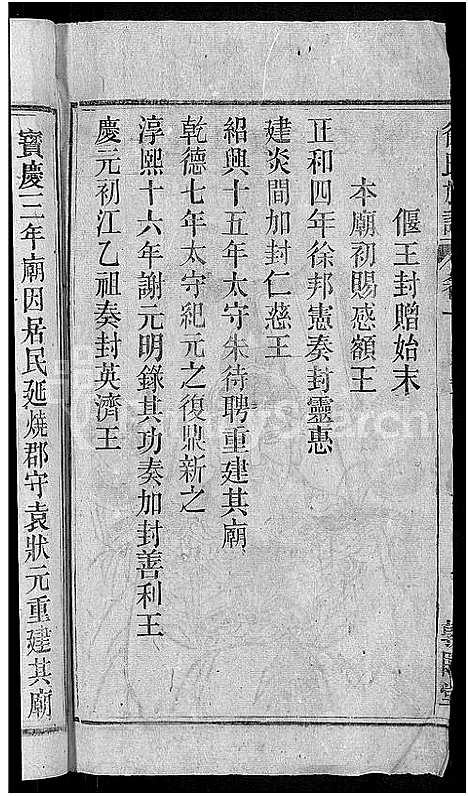 偃王封贈始末
本廟初賜感額王
正和四年徐邦憲奏封靈惠
建炎間加封仁慈王
紹興十五年太守朱待聘重建其廟
乾德七年太守紀元之復鼎新之
淳熙十六年謝元明錄其功奏加封善利王
慶元初江乙祖奏封英濟王
寶慶三年廟因居民延燒郡守袁狀元重建其廟